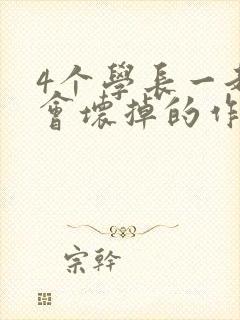 4个學長一
會壞掉的作
宗幹